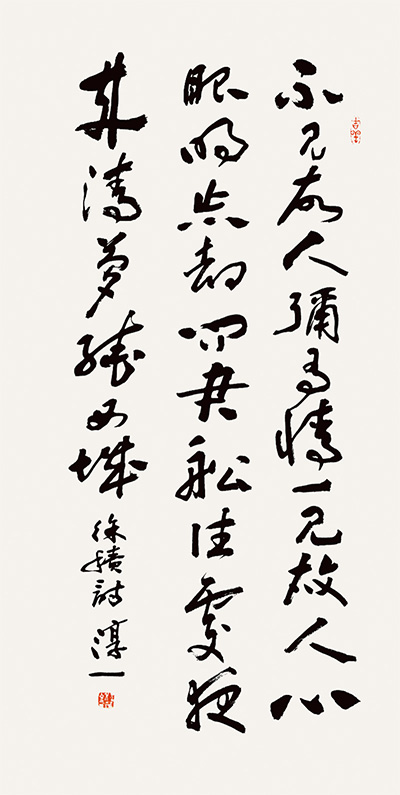 不見故人彌有情一見故人心
眼明忘却問君舩住處夜
来清夢繞西城
徐積詩 淳一